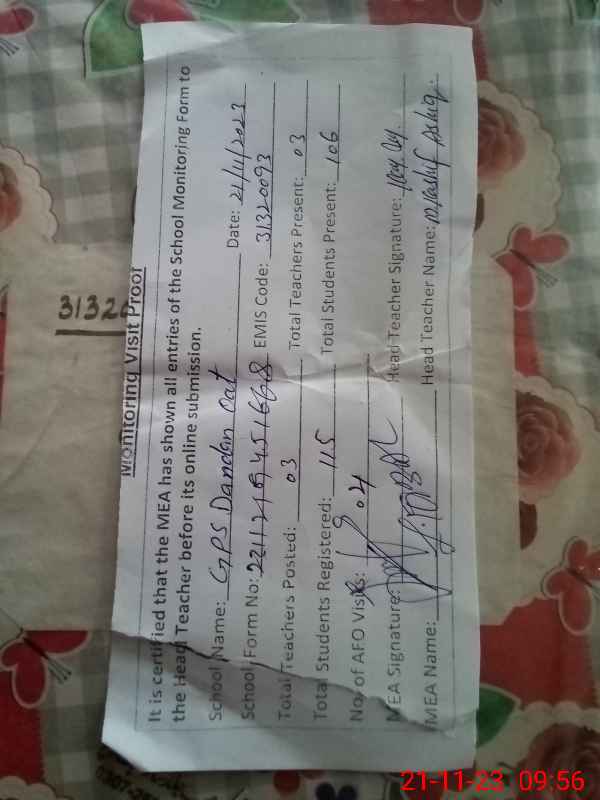 Monitoring Visit Proof
It is certified that the MEA has shown all entries of the School Monitoring Form to
the Head Teacher before its online submission.
School Name: GPS Dandan Oat Date: 21/11/2023
School Form No: EMIS Code: 31320093
Total Teachers Posted: 03 Total Teachers Present: 03
Total Students Registered: 115 Total Students Present: 106
No. of AFO Visits: 04
MEA Signature: Head Teacher Signature:
MEA Name: Head Teacher Name: M. Kashif Ashiq.
3132
21-11-23 09:56